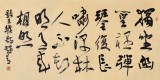 獨坐幽
篁裏彈
琴復長
嘯深林
人不知
明月来
相照